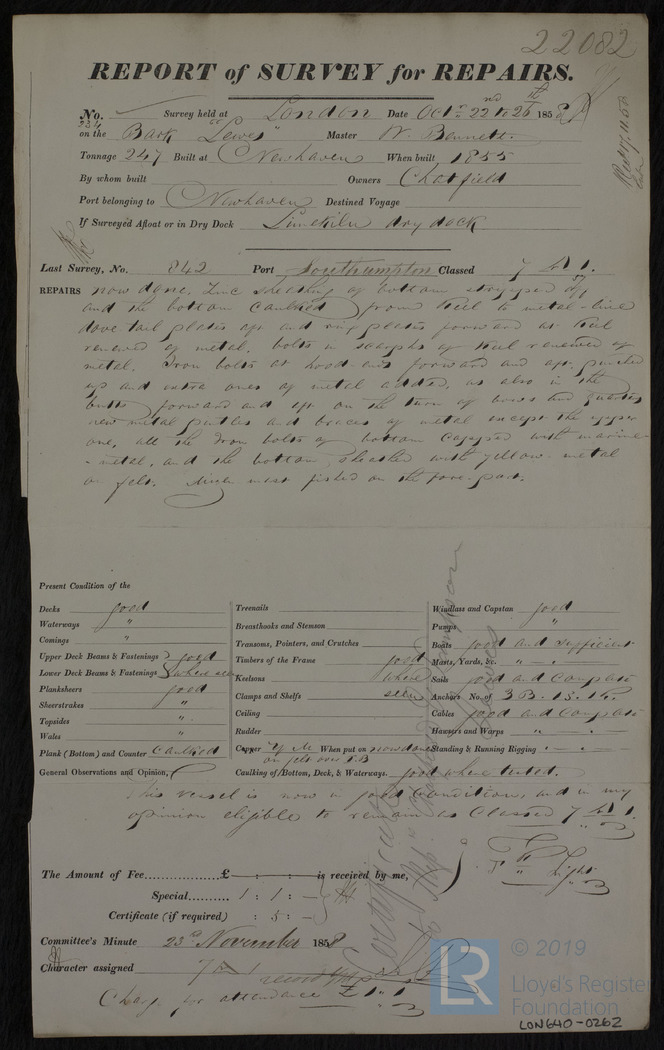 22082
REPORT of SURVEY for REPAIRS.
No. 234 Survey held at London Date Octr 22nd to 26th 1858
on the Bark "Lewes" Master W. Bennett
Tonnage 247 Built at Newhaven When built 1855
By whom built Owners Chatfield
Port belonging to Newhaven Destined Voyage
If Surveyed Afloat or in Dry Dock Limekiln dry dock
Last Survey, No. 842 Port Southampton Classed 7 A 1.
REPAIRS now done, Zinc sheathing of bottom stripped off
and the bottom caulked from keel to metal-line
dove tail plates aft and ring plates forward at keel
renewed of metal, bolts in scarphs of keel renewed of
metal. Iron bolts at hood-ends forward and aft punched
up and extra ones of metal added, as also in the
butts forward and aft on the turn of bows and quarters
new metal pintles and braces of metal except the upper
one, all the Iron bolts of bottom capped with marine
-metal, and the bottom sheathed with yellow-metal
on felt. Mizen mast fished on the fore-part.
Present Condition of the
Decks good
Waterways "
Comings "
Upper Deck Beams & Fastenings good
Lower Deck Beams & Fastenings where seen
Planksheers good
Sheerstrakes "
Topsides "
Wales "
Plank (Bottom) and Counter Caulked
Treenails
Breasthooks and Stemson
Transoms, Pointers, and Crutches
Timbers of the Frame good
Keelsons where
Clamps and Shelfs seen
Ceiling
Rudder
Copper Y.M. When put on now done
on felt over I.B
Caulking of Bottom, Deck, & Waterways. good where tested.
Windlass and Capstan good
Pumps "
Boats good and sufficient
Masts, Yards, &c. " - "
Sails good and Complete
Anchors No. of 3B. 1S. 1K.
Cables good and Complete
Hawsers and Warps " - "
Standing & Running Rigging " - "
General Observations and Opinion,
This vessel is now in good Condition, and in my
opinion eligible to remain as Classed 7 A 1.
The Amount of Fee £ : : is received by me,
Special 1 : 1 : -
Certificate (if required) : 5 : -
Committee's Minute 23rd November 1858
Character assigned 7 A 1
Charge for attendance £1 " 1
© 2019
LR
Lloyd's Register
Foundation
LON640-0262